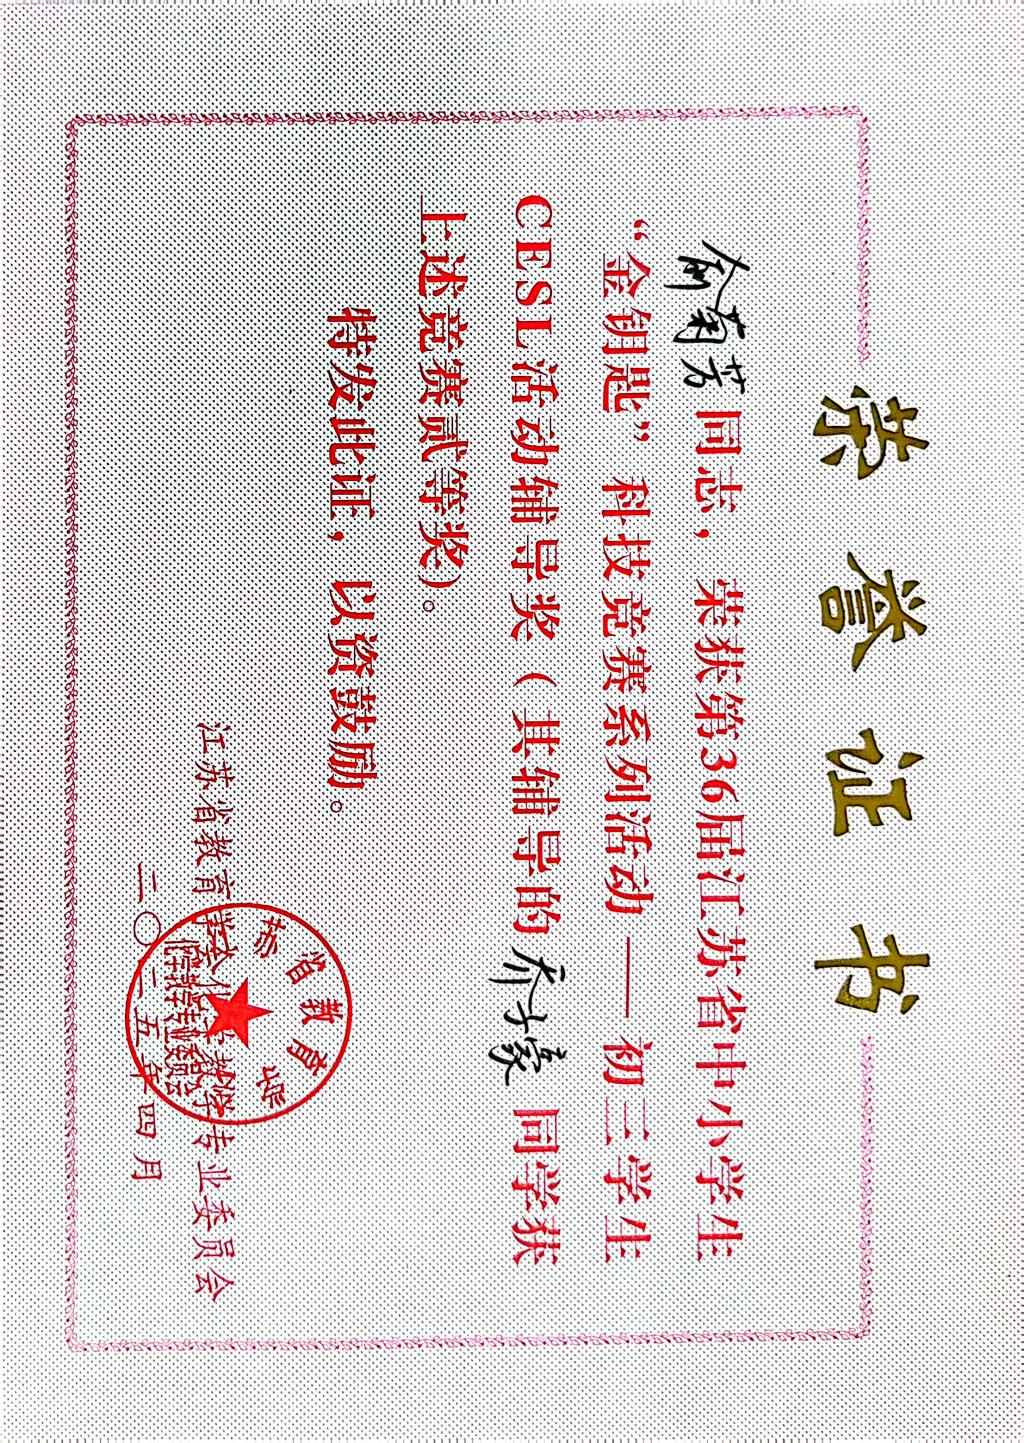 荣誉证书
俞菊芳同志，荣获第36届江苏省中小学生
“金钥匙”科技竞赛系列活动——初三学生
CESL活动辅导奖（其辅导的乔子豪同学获
上述竞赛贰等奖）。
特发此证，以资鼓励。
江苏省教育学会化学教学专业委员会
二〇二五年四月